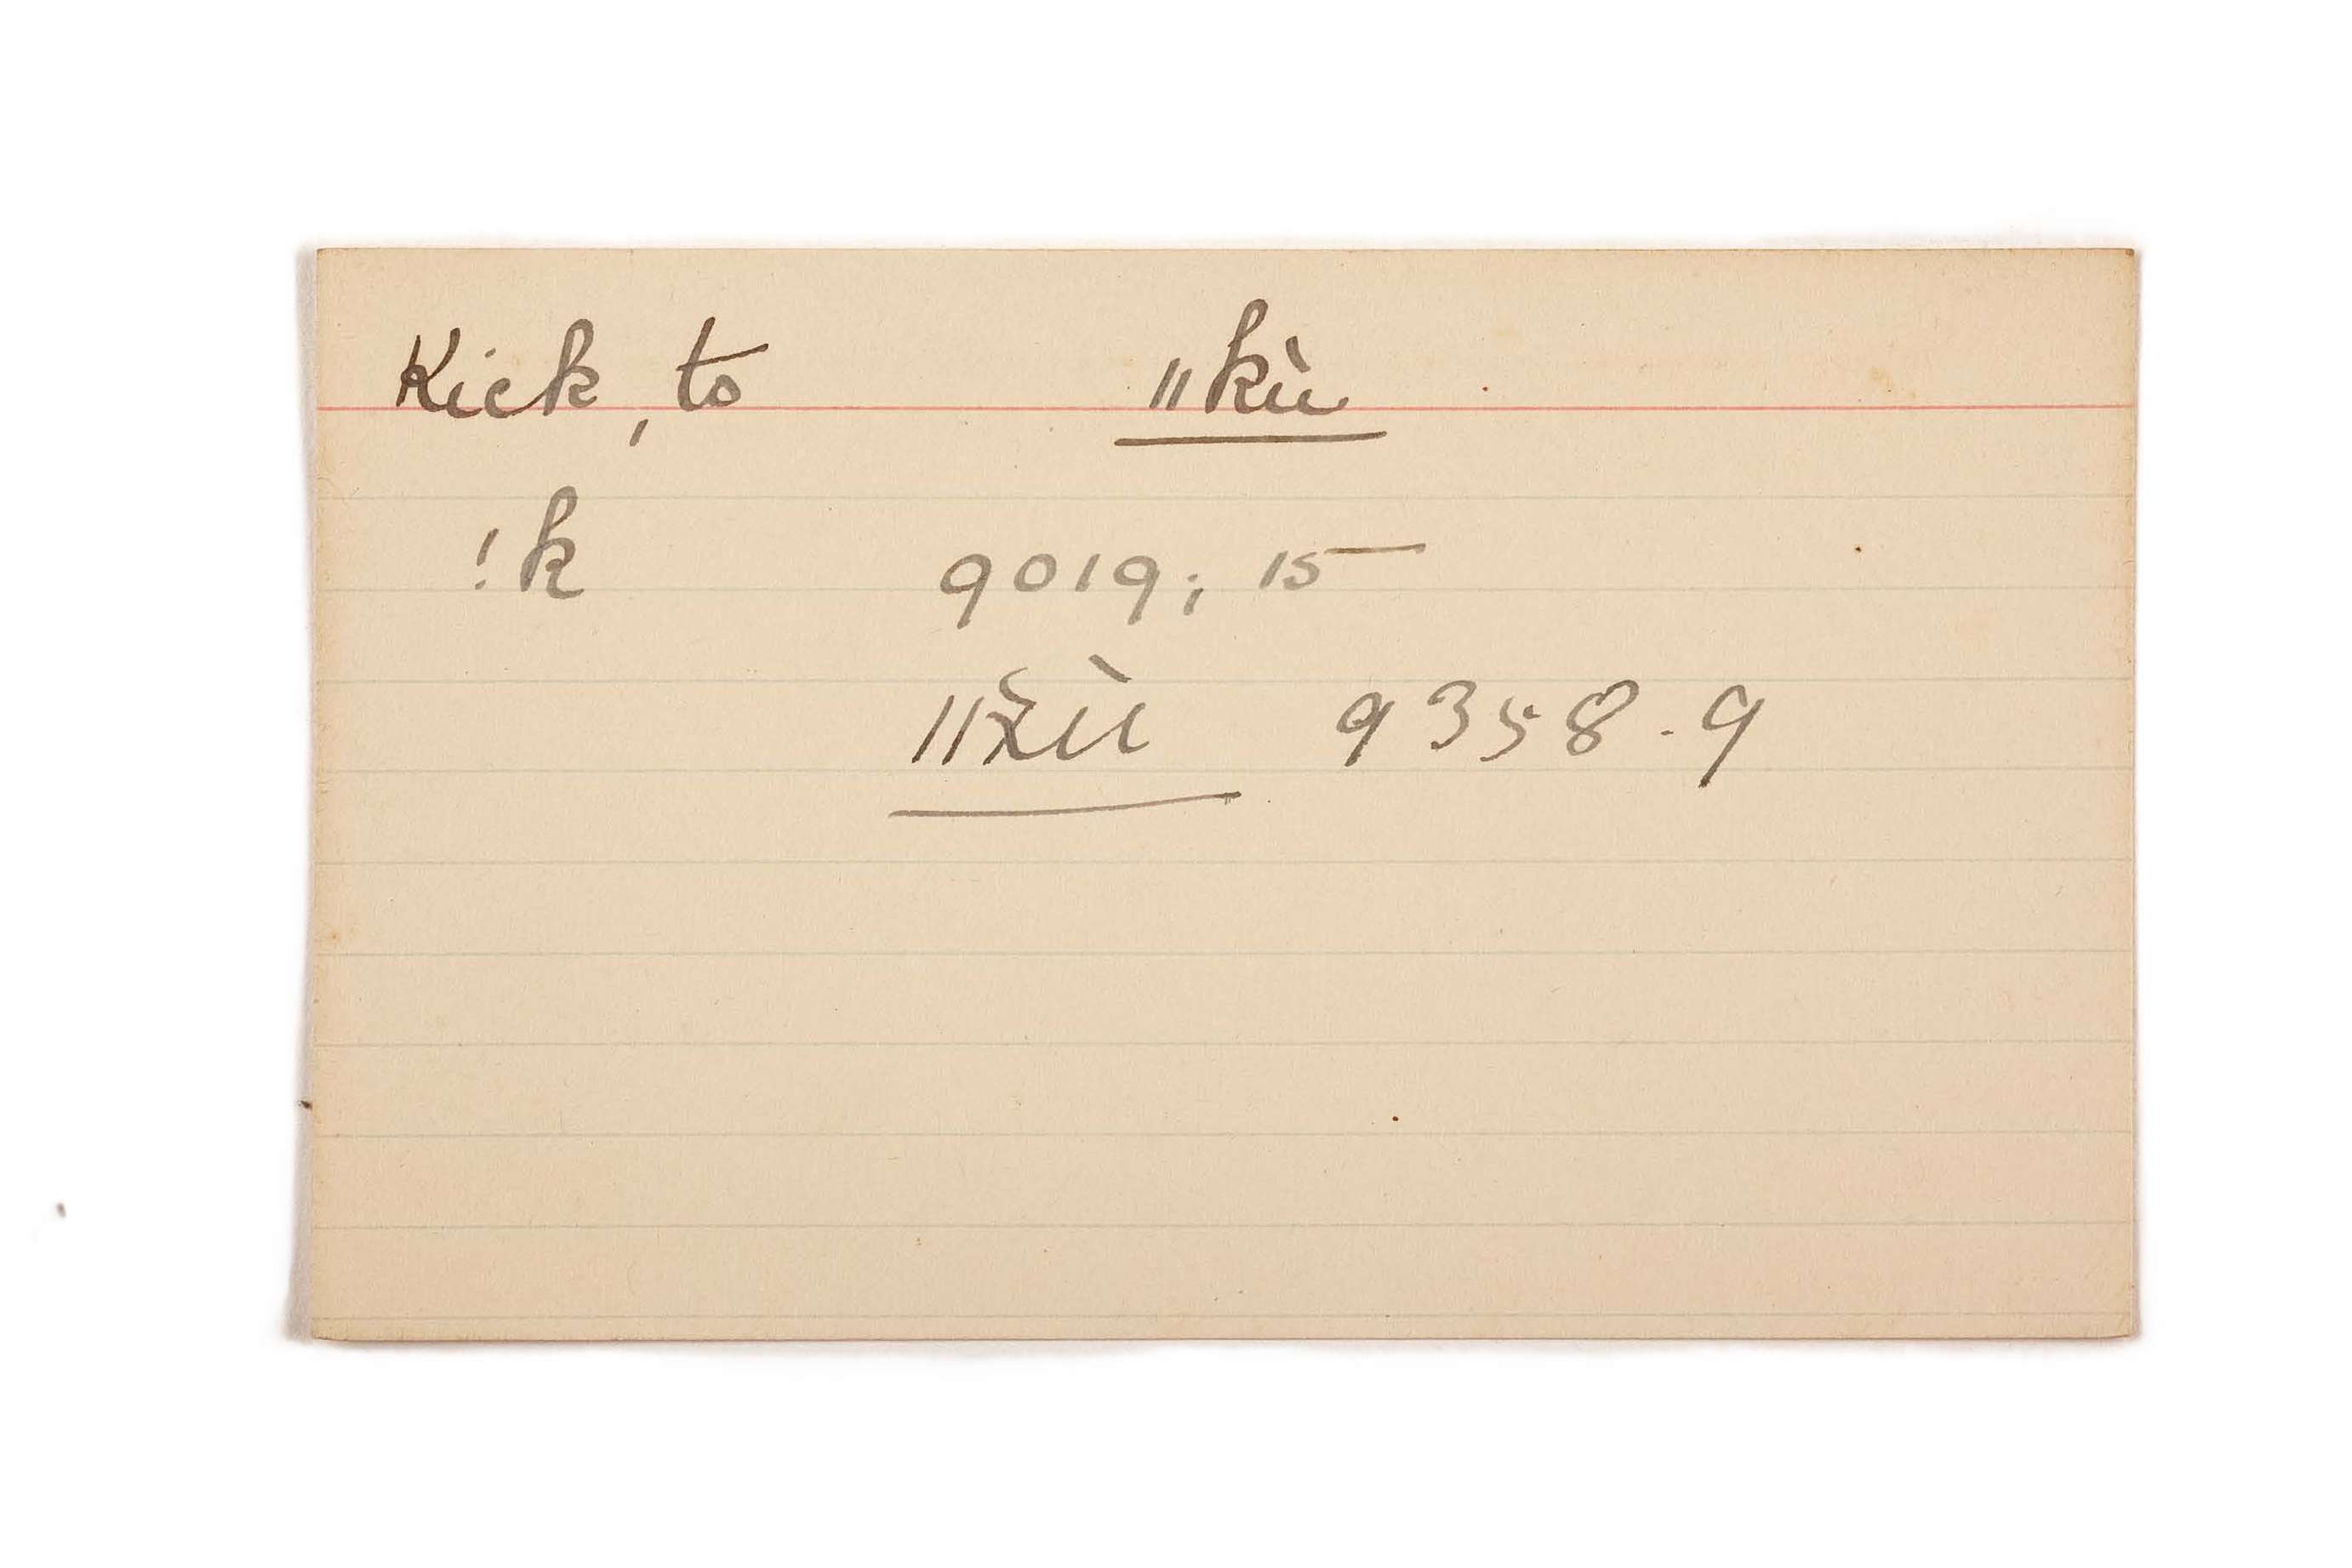 Kick, to ǁkù
!k 9019; 15
ǁkù 9358.9